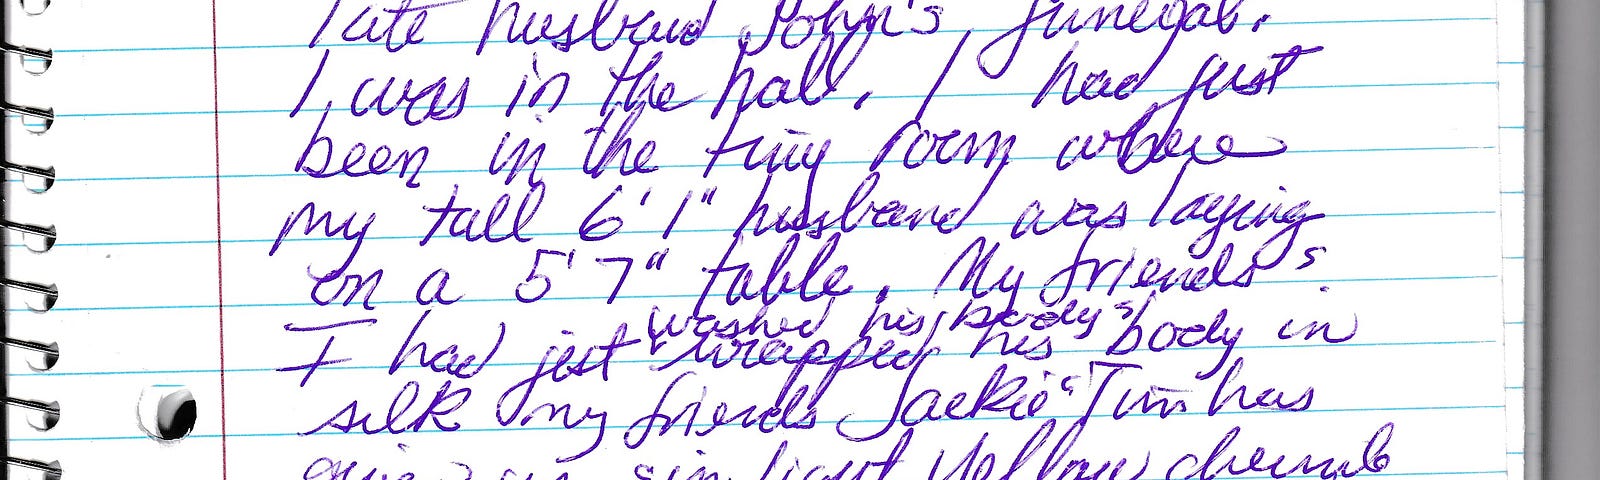 late husband John's funeral.
I was in the hall. I had just
been in the tiny room where
my tall 6'1" husband was laying
on a 5'7" table. My friends
washed his body
I had just wrapped his body in
silk my friends Jackie Tim has
light yellow